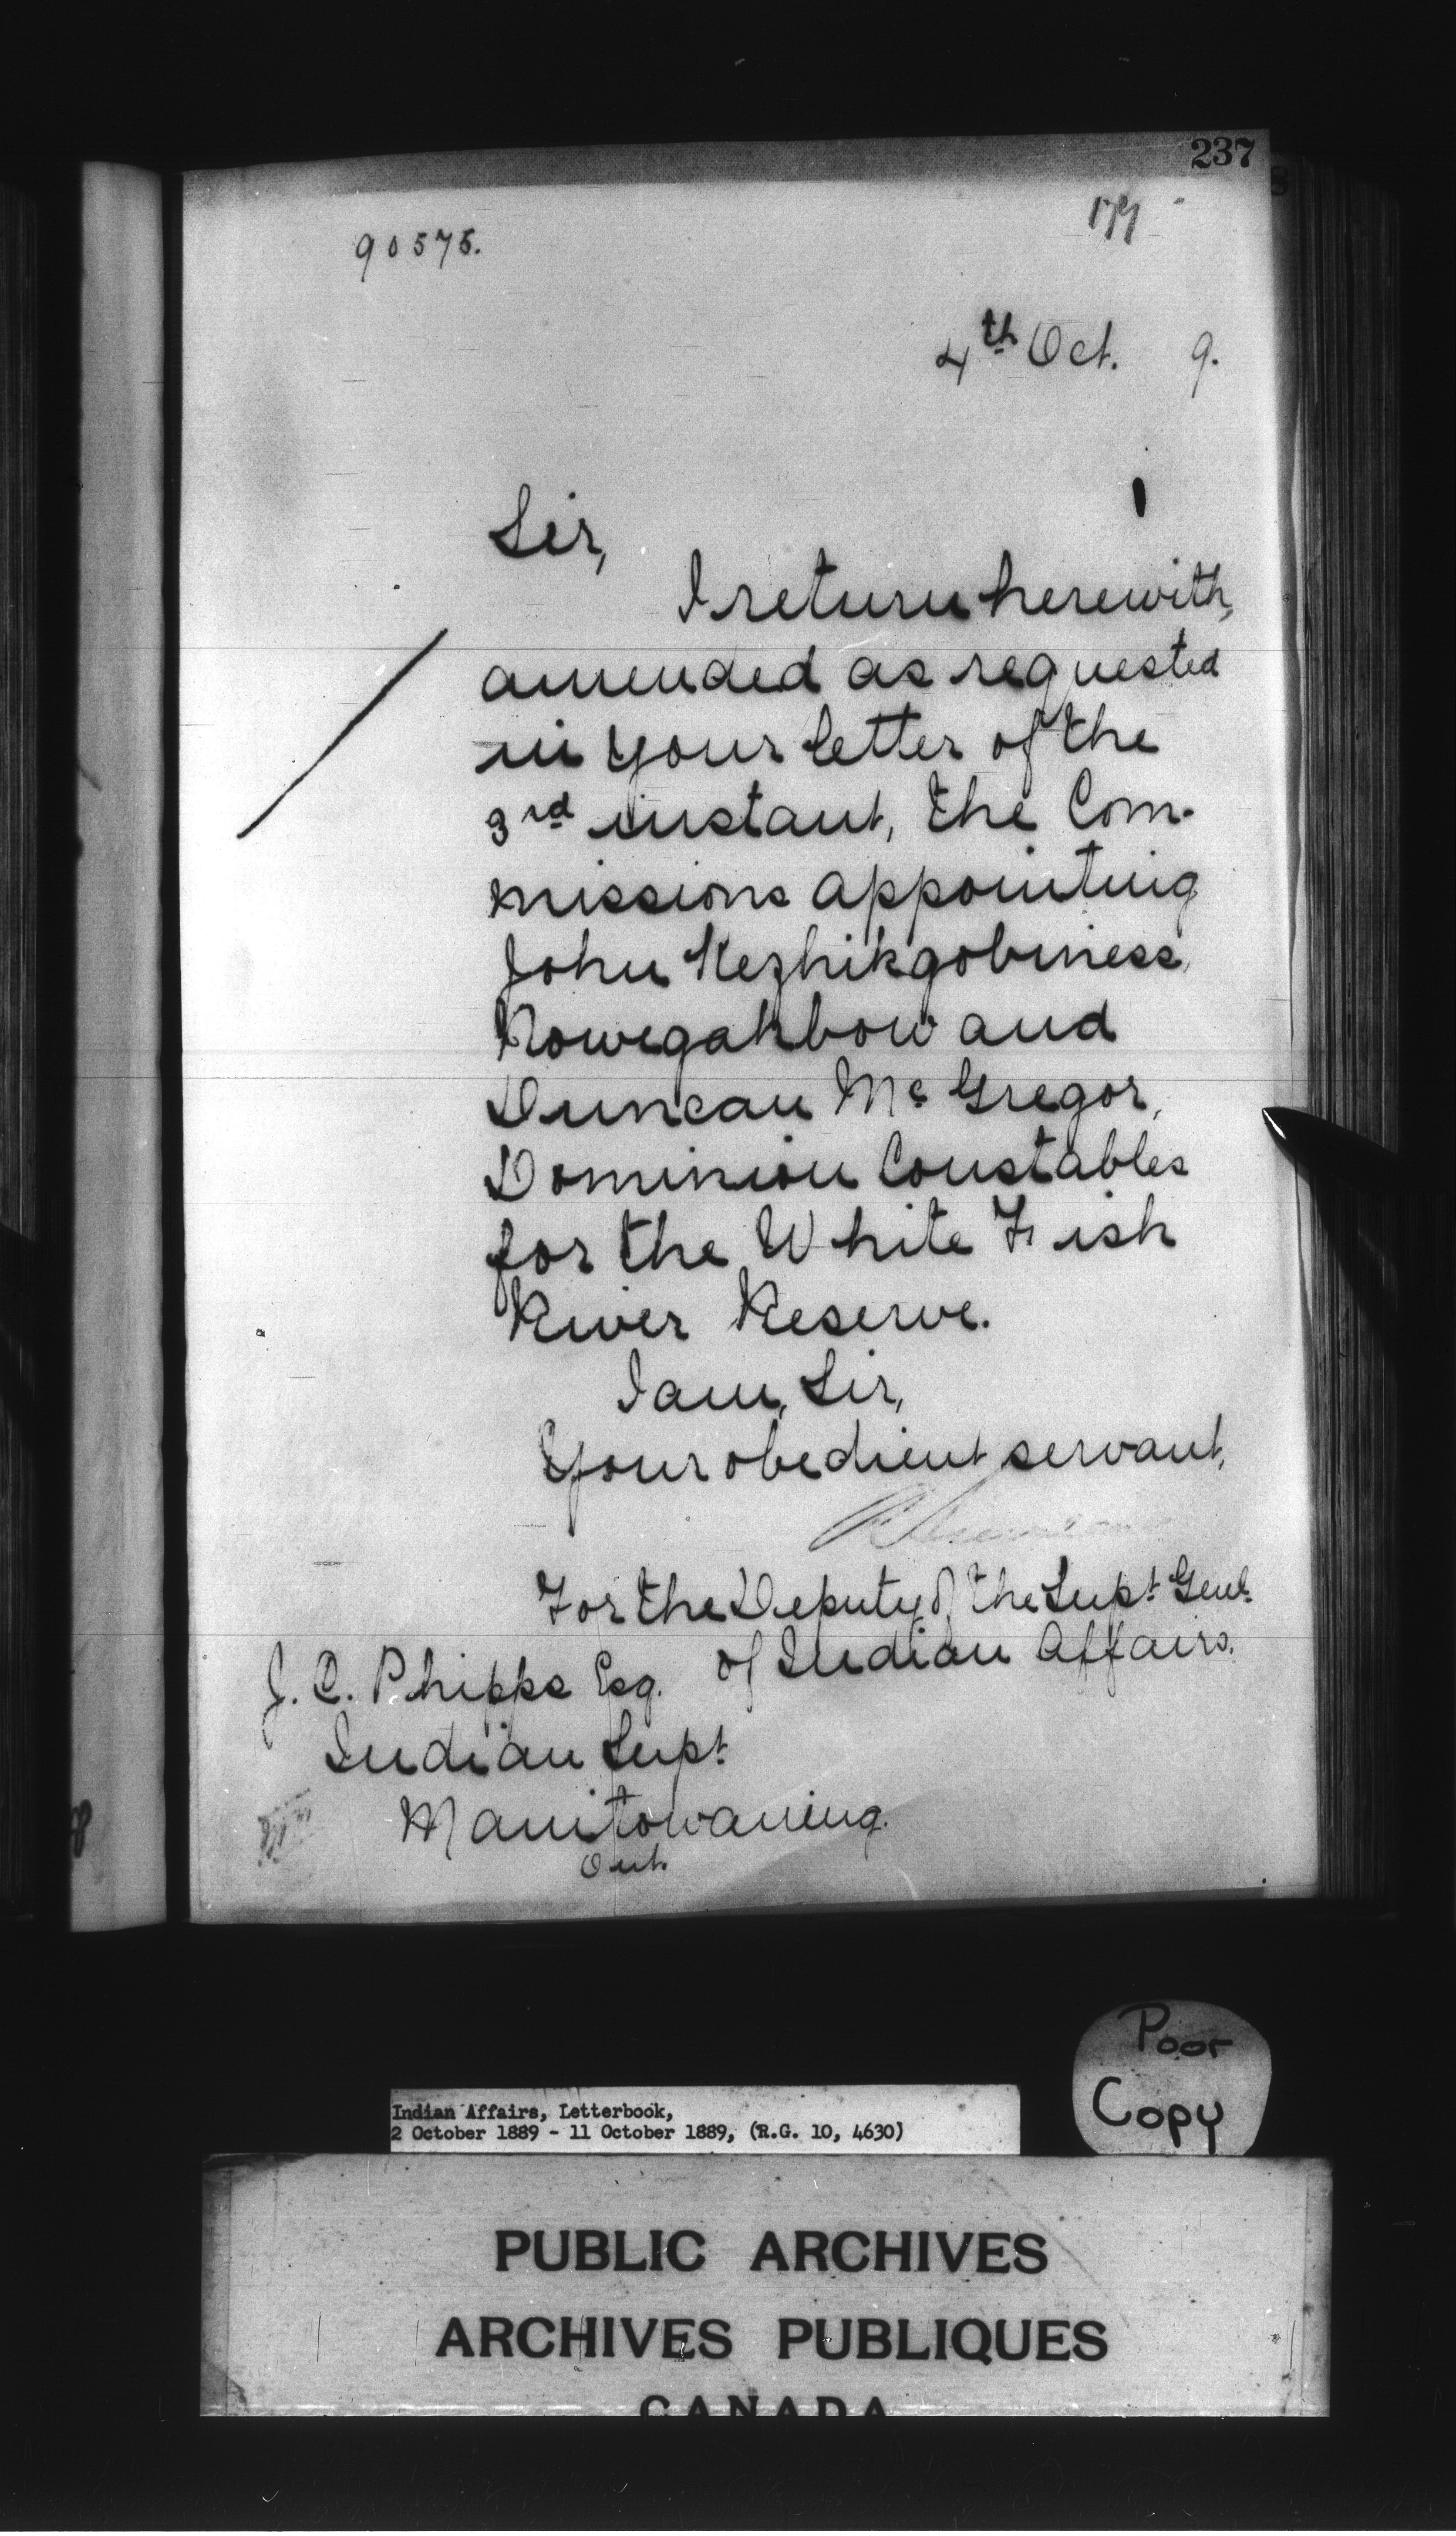 237
177
90575.
4th Oct. 9.
Sir,
I return herewith,
amended as requested
in your letter of the
3rd instant, the Com-
missions appointing
John Kezhikgobiness,
Nowegahbow and
Duncan McGregor,
Dominion Constables
for the White Fish
River Reserve.
I am, Sir,
Your obedient servant,
For the Deputy of the Supt. Genl.
of Indian Affairs.
J. C. Phipps Esq.
Indian Supt.
Manitowaning.
Ont.
Poor
Copy
Indian Affairs, Letterbook,
2 October 1889 - 11 October 1889, (R.G. 10, 4630)
PUBLIC ARCHIVES
ARCHIVES PUBLIQUES
CANADA